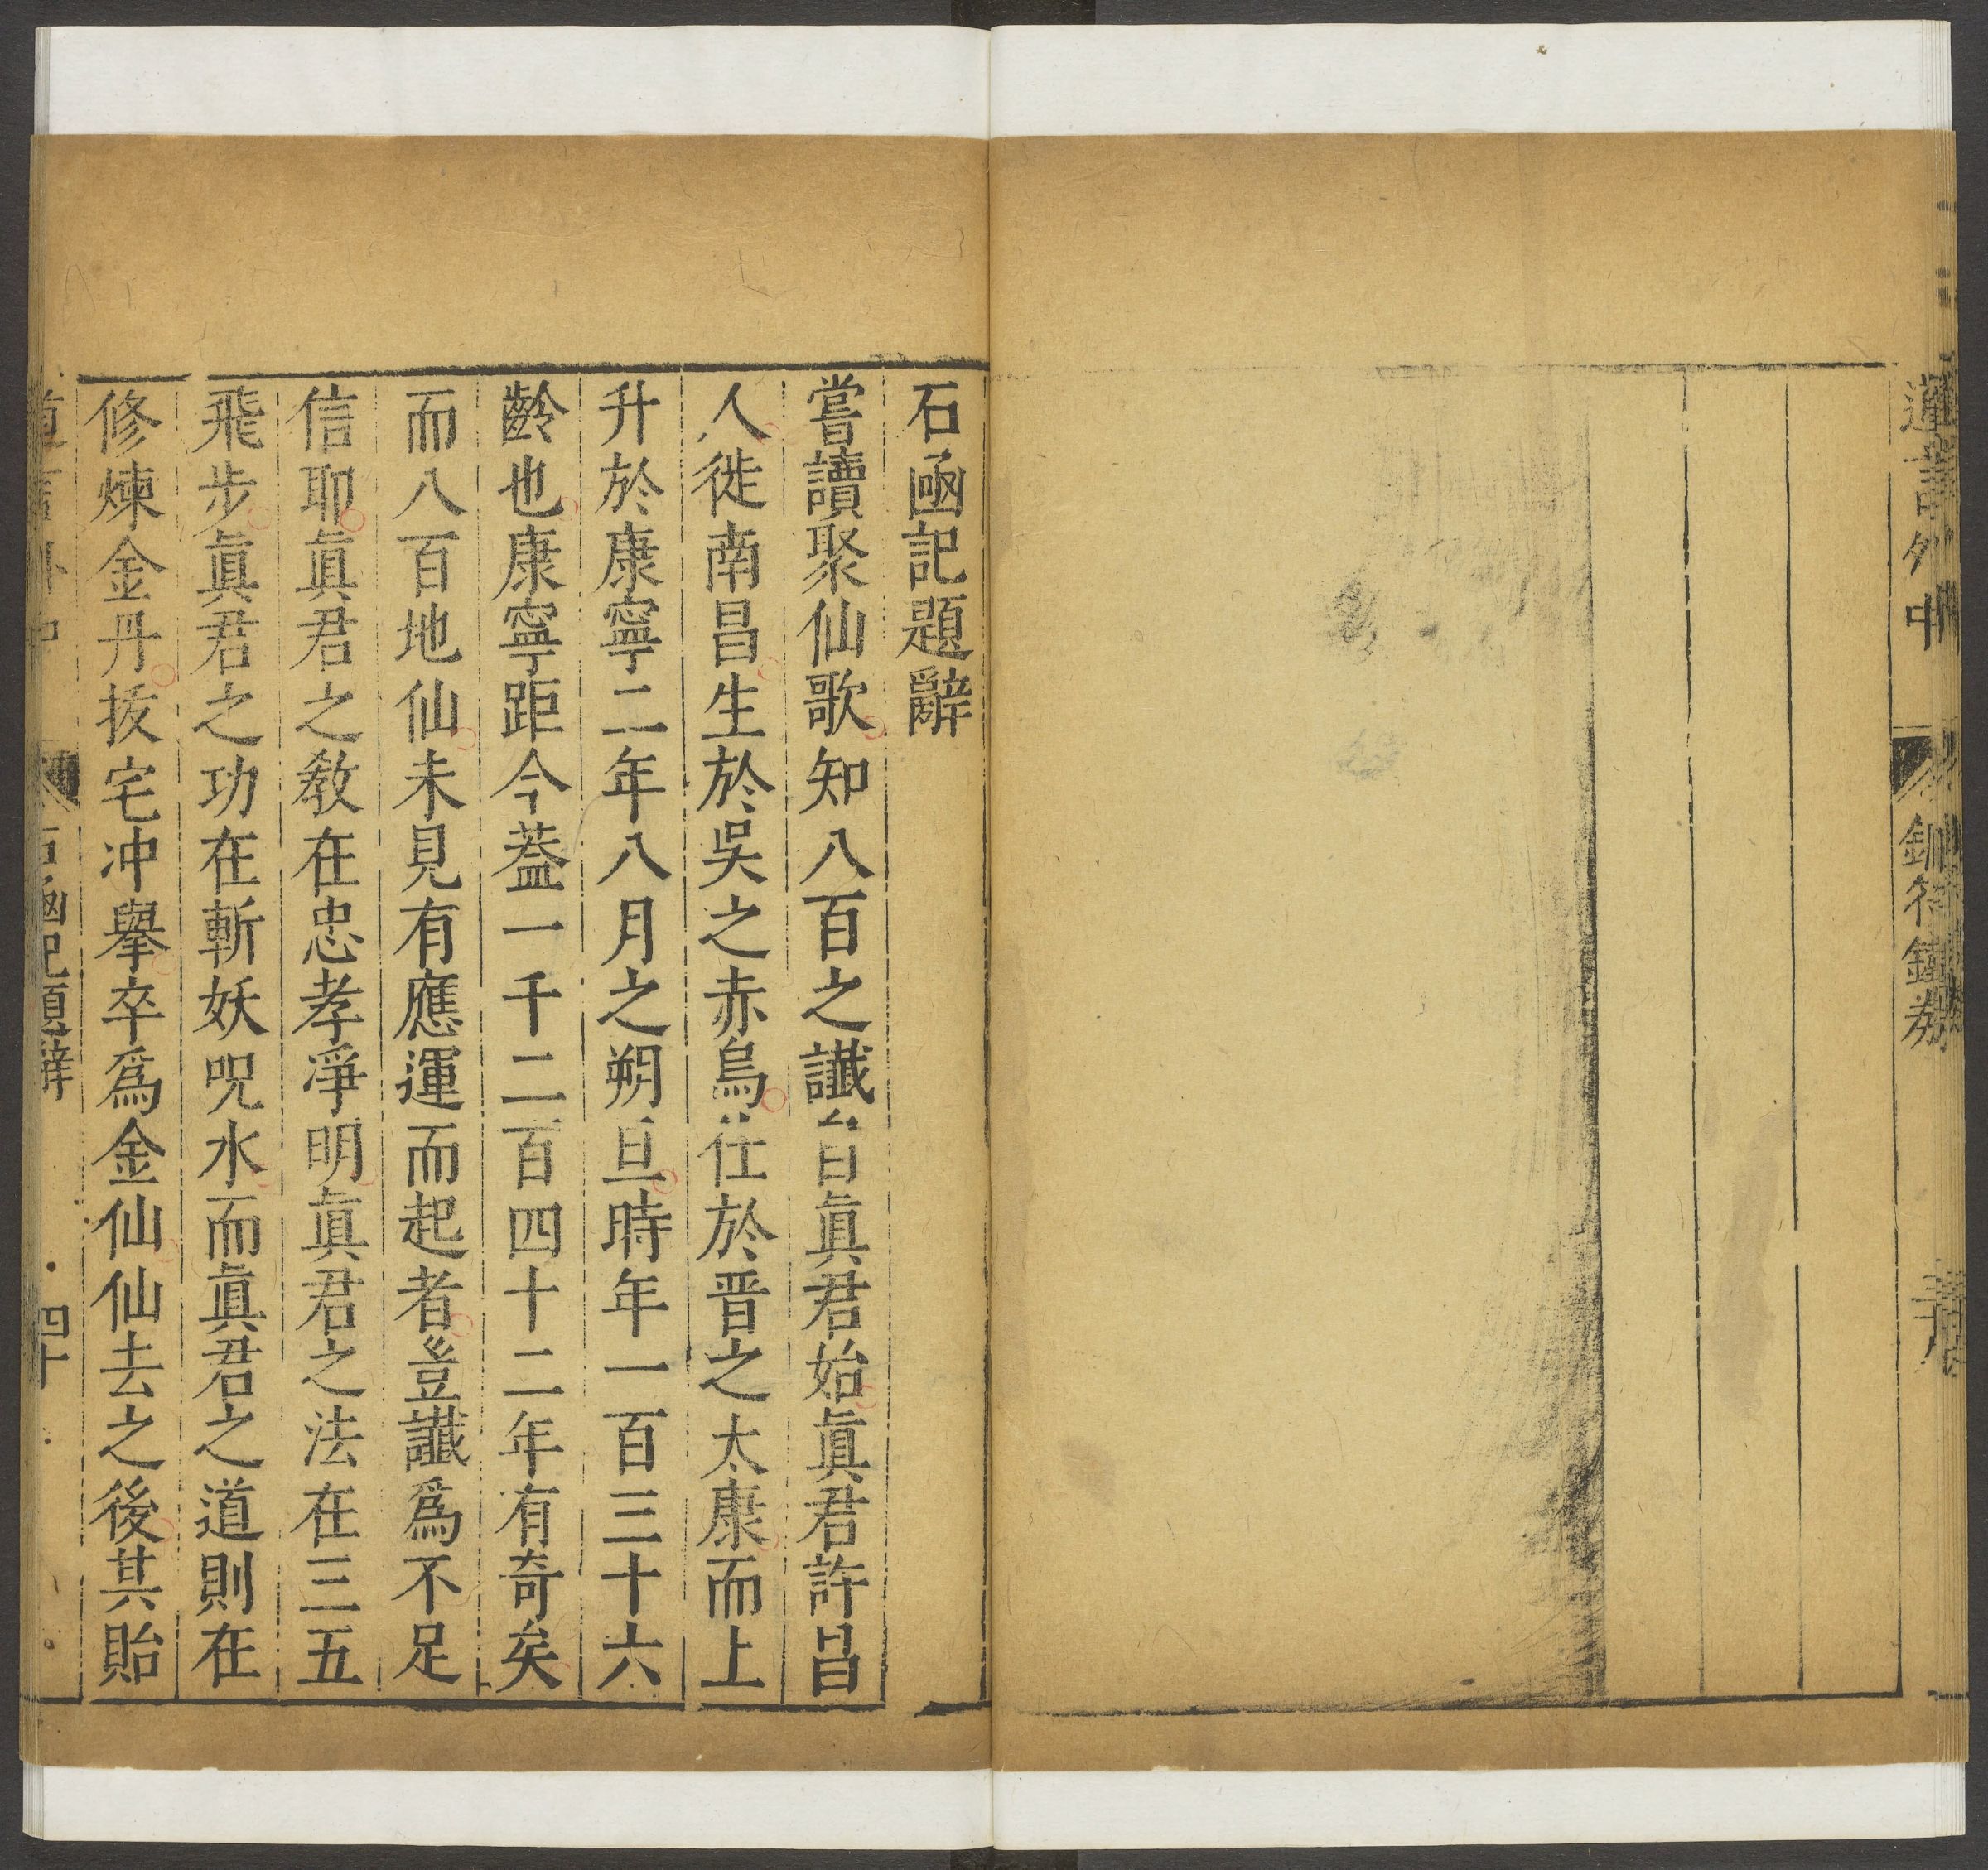 石凾記題辭
嘗讀聚仙歌知八百之讖自眞君始眞君許昌
人徙南昌生於吳之赤烏仕於晋之太康而上
升於康寧二年八月之朔旦時年一百三十六
齡也康寧距今葢一千二百四十二年有奇矣
而八百地仙未見有應運而起者豈讖爲不足
信耶眞君之敎在忠孝淨明眞君之法在三五
飛步眞君之功在斬妖呪水而眞君之道則在
修煉金丹拔宅冲擧卒爲金仙仙去之後其貽
石凾記題辭
四十